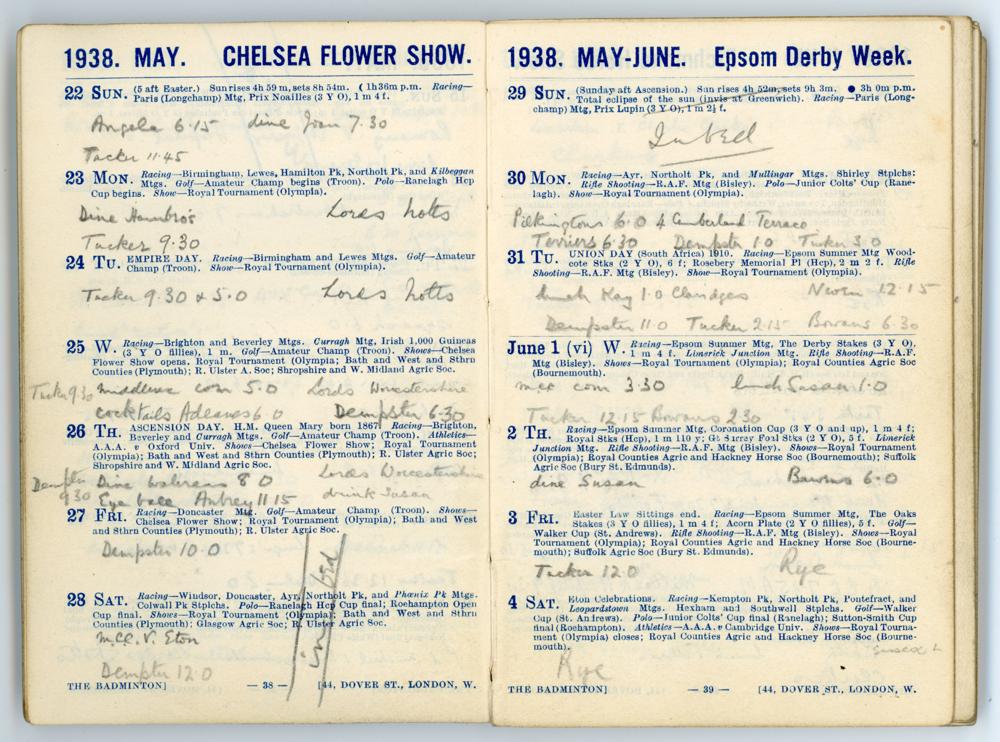 1938. MAY. CHELSEA FLOWER SHOW.
22 SUN. (5 aft Easter.) Sun rises 4h 59 m, sets 8h 54m. ☾ 1h36m p.m. Racing—
Paris (Longchamp) Mtg, Prix Noailles (3 Y O), 1 m 4 f.
Angela 6.15 dine Joan 7.30
Tucker 11.45
23 MON. Racing—Birmingham, Lewes, Hamilton Pk, Northolt Pk, and Kilbeggan
Mtgs. Golf—Amateur Champ begins (Troon). Polo—Ranelagh Hcp
Cup begins. Show—Royal Tournament (Olympia).
Dine Hambro's Lords Notts
Tucker 9.30
24 TU. EMPIRE DAY. Racing—Birmingham and Lewes Mtgs. Golf—Amateur
Champ (Troon). Show—Royal Tournament (Olympia).
Tucker 9.30 & 5.0 Lords Notts
25 W. Racing—Brighton and Beverley Mtgs. Curragh Mtg, Irish 1,000 Guineas
(3 Y O fillies), 1 m. Golf—Amateur Champ (Troon). Shows—Chelsea
Flower Show opens. Royal Tournament (Olympia); Bath and West and Sthrn
Counties (Plymouth); R. Ulster A. Soc; Shropshire and W. Midland Agric Soc.
Tucker 9.30 middlesex com 5.0 Lords Worcestershire
cocktails Adeanes 6.0 Dempster 6.30
26 TH. ASCENSION DAY. H.M. Queen Mary born 1867. Racing—Brighton,
Beverley and Curragh Mtgs. Golf—Amateur Champ (Troon). Athletics—
A.A.A. v Oxford Univ. Shows—Chelsea Flower Show; Royal Tournament
(Olympia); Bath and West and Sthrn Counties (Plymouth); R. Ulster Agric Soc;
Shropshire and W. Midland Agric Soc.
Dempster 9.30 Dine 8.0 Lords Worcestershire
Eye Aubrey 11.15 drink Susan
27 FRI. Racing—Doncaster Mtg. Golf—Amateur Champ (Troon). Shows—
Chelsea Flower Show; Royal Tournament (Olympia); Bath and West
and Sthrn Counties (Plymouth); R. Ulster Agric Soc.
Dempster 10.0
28 SAT. Racing—Windsor, Doncaster, Ayr, Northolt Pk, and Phœnix Pk Mtgs.
Colwall Pk Stplchs. Polo—Ranelagh Hcp Cup final; Roehampton Open
Cup final. Shows—Royal Tournament (Olympia); Bath and West and Sthrn
Counties (Plymouth); Glasgow Agric Soc; R. Ulster Agric Soc.
MCC v. Eton
Dempster 12.0
THE BADMINTON] — 38 — [44, DOVER ST., LONDON, W.
1938. MAY-JUNE. Epsom Derby Week.
29 SUN. (Sunday aft Ascension.) Sun rises 4h 52m, sets 9h 3m. ● 3h 0m p.m.
Total eclipse of the sun (invis at Greenwich). Racing—Paris (Long-
champ) Mtg, Prix Lupin (3 Y O), 1 m 2½ f.
In bed
30 MON. Racing—Ayr, Northolt Pk, and Mullingar Mtgs. Shirley Stplchs:
Rifle Shooting—R.A.F. Mtg (Bisley). Polo—Junior Colts' Cup (Rane-
lagh). Show—Royal Tournament (Olympia).
Pilkingtons 6.0 4 Cumberland Terrace
Terriers 6.30 Dempster 1.0 Tucker 3.0
31 TU. UNION DAY (South Africa) 1910. Racing—Epsom Summer Mtg Wood-
cote Stks (2 Y O), 6 f; Rosebery Memorial Pl (Hcp), 2 m 2 f. Rifle
Shooting—R.A.F. Mtg (Bisley). Show—Royal Tournament (Olympia).
lunch Kay 1.0 Claridges 12.15
Dempster 11.0 Tucker 2.15 Bowaus 6.30
June 1 (vi) W. Racing—Epsom Summer Mtg, The Derby Stakes (3 Y O),
1 m 4 f. Limerick Junction Mtg. Rifle Shooting—R.A.F.
Mtg (Bisley). Shows—Royal Tournament (Olympia); Royal Counties Agric Soc
(Bournemouth).
mcc com 3.30 lunch Susan 1.0
Tucker 12.15 Bowaus 2.30
2 TH. Racing—Epsom Summer Mtg, Coronation Cup (3 Y O and up), 1 m 4 f;
Royal Stks (Hcp), 1 m 110 y; Gt Surrey Foal Stks (2 Y O), 5 f. Limerick
Junction Mtg. Rifle Shooting—R.A.F. Mtg (Bisley). Shows—Royal Tournament
(Olympia); Royal Counties Agric and Hackney Horse Soc (Bournemouth); Suffolk
Agric Soc (Bury St. Edmunds).
dine Susan Bowaus 6.0
3 FRI. Easter Law Sittings end. Racing—Epsom Summer Mtg, The Oaks
Stakes (3 Y O fillies), 1 m 4 f; Acorn Plate (2 Y O fillies), 5 f. Golf—
Walker Cup (St. Andrews). Rifle Shooting—R.A.F. Mtg (Bisley). Shows—Royal
Tournament (Olympia); Royal Counties Agric and Hackney Horse Soc (Bourne-
mouth); Suffolk Agric Soc (Bury St. Edmunds).
Tucker 12.0 Rye
4 SAT. Eton Celebrations. Racing—Kempton Pk, Northolt Pk, Pontefract, and
Leopardstown Mtgs. Hexham and Southwell Stplchs. Golf—Walker
Cup (St. Andrews). Polo—Junior Colts' Cup final (Ranelagh); Sutton-Smith Cup
final (Roehampton). Athletics—A.A.A. v Cambridge Univ. Shows—Royal Tourna-
ment (Olympia) closes; Royal Counties Agric and Hackney Horse Soc (Bourne-
mouth).
Sussex L
Rye
THE BADMINTON] — 39 — [44, DOVER ST., LONDON, W.